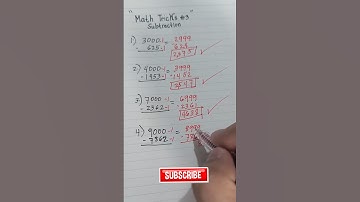 "Math Tricks #3"
Subtraction
1) 3000-1 = 2999
- 625-1 - 624
2375
2) 4000-1 = 3999
- 1453-1 - 1452
2547
3) 7000-1 = 6999
- 2362-1 - 2361
4638
4) 9000-1 = 8999
- 7362-1
"SUBSCRIBE"